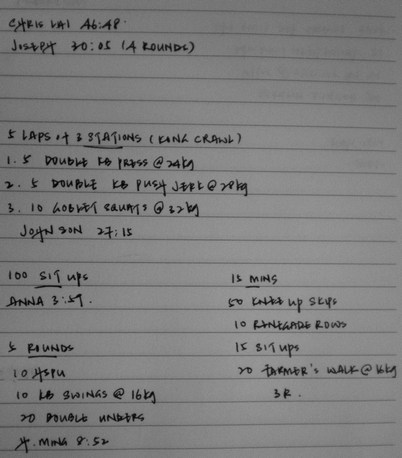 CHRIS LAI 46:48
JOSEPH 30:05 (4 ROUNDS)
5 LAPS OF 3 STATIONS (KONG CRAWL)
1. 5 DOUBLE KB PRESS @ 24kg
2. 5 DOUBLE KB PUSH JERK @ 28kg
3. 10 GOBLET SQUATS @ 32kg
JOHNSON 27:15
100 SIT UPS
ANNA 3:59.
5 ROUNDS
10 HSPU
10 KB SWINGS @ 16kg
20 DOUBLE UNDERS
4. MING 8:52
15 MINS
50 KNEE UP SKIPS
10 RENEGADE ROWS
15 SIT UPS
20 FARMER'S WALK @ 16kg
3R.